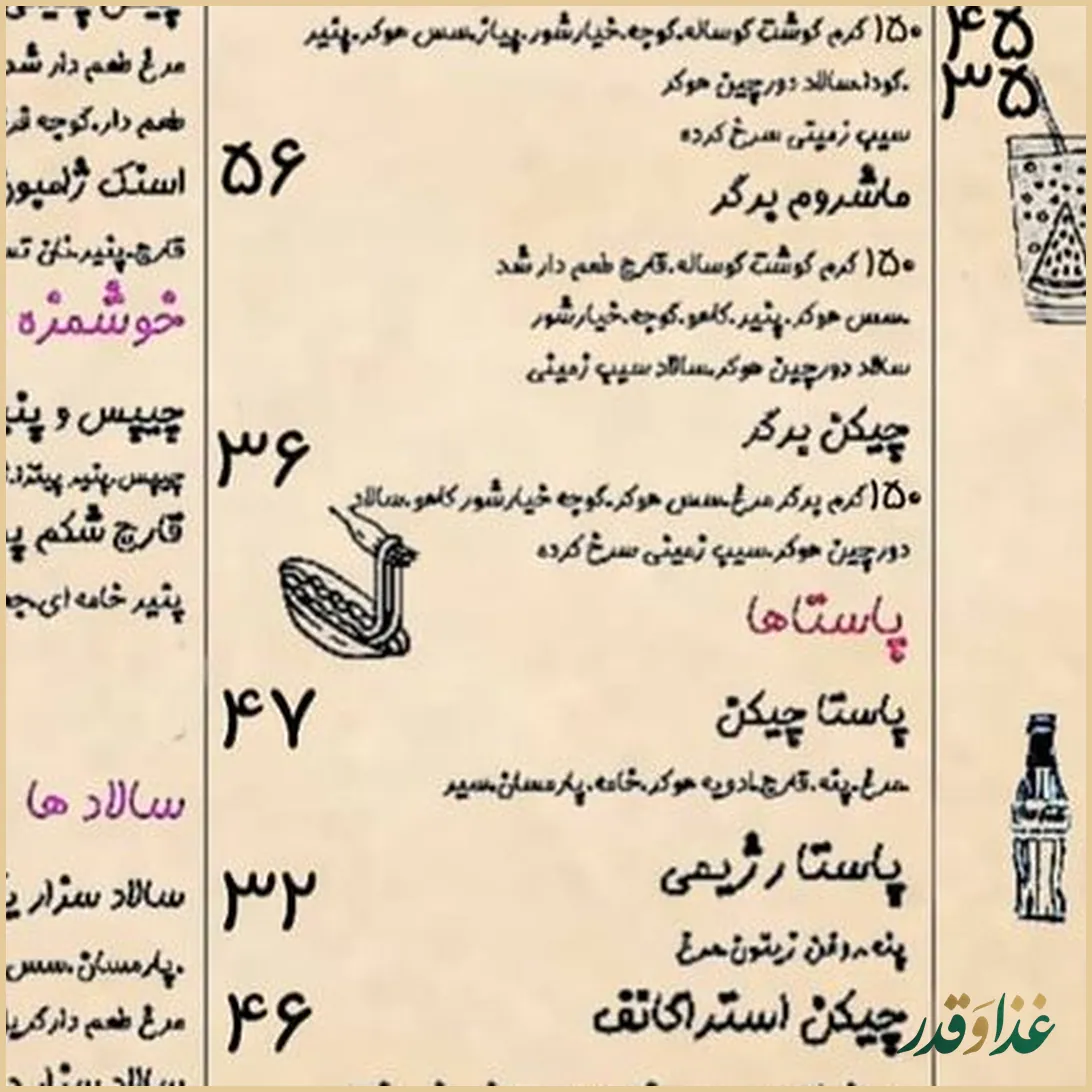 ۴۵
۳۵
۱۵۰ گرم گوشت گوساله.گوجه.خیارشور.پیاز.سس هوگر.پنیر
.گودا.سالاد دورچین هوگر
سیب زمینی سرخ کرده
ماشروم برگر
۵۶
۱۵۰ گرم گوشت گوساله.قارچ طعم دار شد
.سس هوگر.پنیر.کاهو.گوجه.خیارشور
سالاد دورچین هوگر.سالاد سیب زمینی
چیکن برگر
۳۶
۱۵۰ گرم برگر مرغ.سس هوگر.گوجه خیارشور کاهو.سالاد
دورچین هوگر.سیب زمینی سرخ کرده
پاستاها
پاستا چیکن
۴۷
.مرغ.پنه.قارچ.ادویه هوگر.خامه.پارمسان.سیر
پاستا رژیمی
۳۲
پنه.روغن زیتون.مرغ
چیکن استراگانف
۴۶
مرغ طعم دار شد
طعم دار.گوجه
اسنک ژامبون
قارچ.پنیر.نان
خوشمزه
چیپس و
چیپس.پنیر پیتزا.
قارچ شکم
پنیر خامه ای.
سالاد ها
سالاد سزار
.پارمسان.سس
مرغ طعم دار
سالاد سزار
غذا و قدر